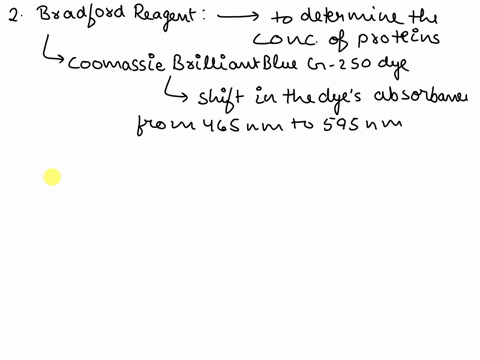 2. Bradford Reagent: → to determine the
conc. of proteins
↳ Coomassie Brilliant Blue G-250 dye
↳ shift in the dye's absorbance
from 465 nm to 595 nm